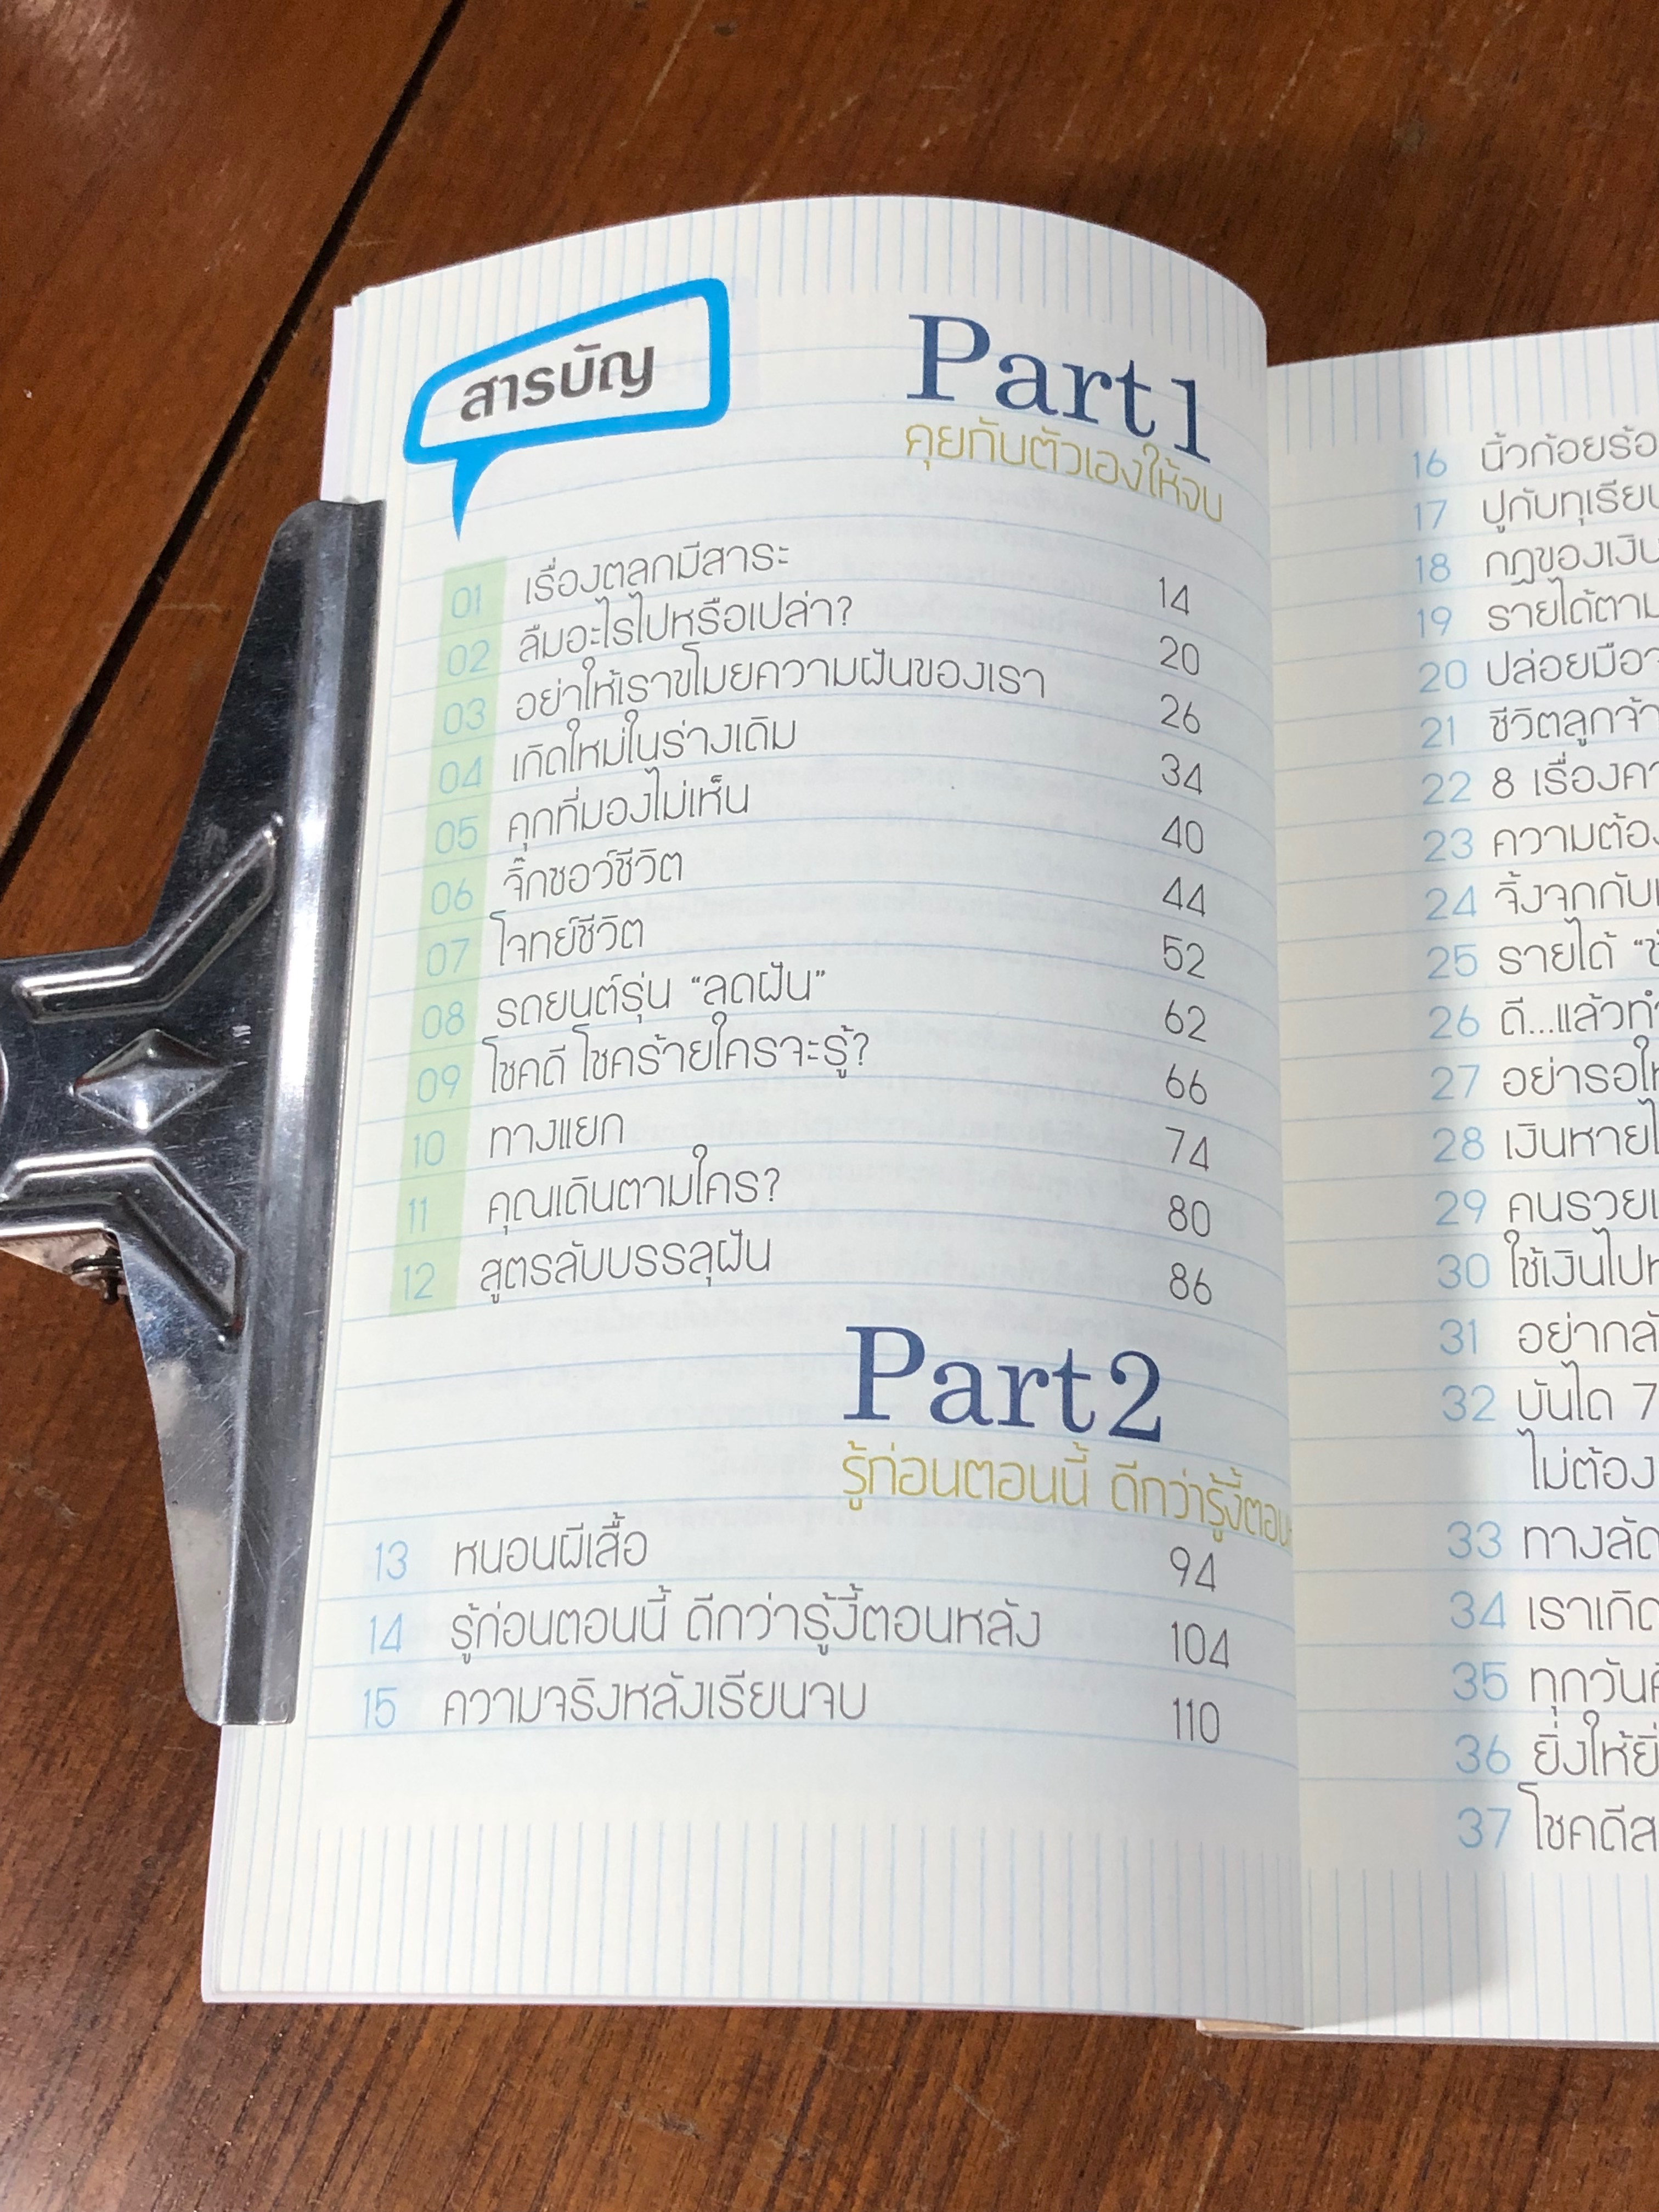 สารบัญ
Part1
คุยกับตัวเองให้จบ
01 เรื่องตลกมีสาระ 14
02 ลืมอะไรไปหรือเปล่า? 20
03 อย่าให้เราขโมยความฝันของเรา 26
04 เกิดใหม่ในร่างเดิม 34
05 คุกที่มองไม่เห็น 40
06 จิ๊กซอว์ชีวิต 44
07 โจทย์ชีวิต 52
08 รถยนต์รุ่น “ลดฝัน” 62
09 โชคดี โชคร้ายใครจะรู้? 66
10 ทางแยก 74
11 คุณเดินตามใคร? 80
12 สูตรลับบรรลุฝัน 86
Part2
รู้ก่อนตอนนี้ ดีกว่ารู้งี้ตอน
13 หนอนผีเสื้อ 94
14 รู้ก่อนตอนนี้ ดีกว่ารู้งี้ตอนหลัง 104
15 ความจริงหลังเรียนจบ 110
16 นิ้วก้อยร้อ
17 ปูกับทุเรีย
18 กฎของเงิน
19 รายได้ตาม
20 ปล่อยมือ
21 ชีวิตลูกจ้า
22 8 เรื่อง
23 ความต้อง
24 จิ้งจกกับ
25 รายได้
26 ดี...แล้วทำ
27 อย่ารอ
28 เงินหาย
29 คนรวย
30 ใช้เงินไป
31 อย่ากลั
32 บันได 7
ไม่ต้อง
33 ทางลัด
34 เราเกิด
35 ทุกวัน
36 ยิ่งให้ยิ่
37 โชคดี